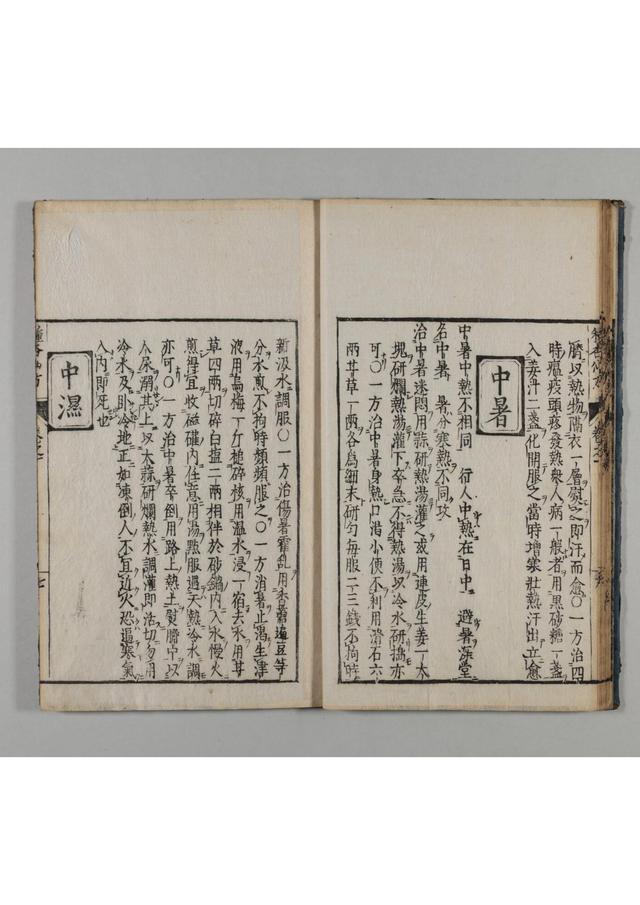 臍以熱物隔衣一層熨之即汗而愈○一方治四
時瘟疫頭疼發熱衆人病一般者用黒砂糖一盞
入姜汁二盞化開服之當時增寒壯熱汗出立愈
中暑
中暑中熱不相同 行人中熱在日中 避暑深堂
名中暑 暑分寒熱不同攻
治中暑迷悶用蒜研熱湯灌之或用連皮生姜一大
塊研爛熱湯灌下卒急不得熱湯以冷水研擣亦
可○一方治中暑身熱口渴小便不利用滑石六
兩甘草一兩各爲細末研勻每服二三錢不拘時
新汲水調服○一方治傷暑霍亂用香薷藊豆等
分水煎不拘時頻頻服之○一方消暑止渴生津
液用烏梅一斤槌碎核用溫水浸一宿去水用甘
草四兩切碎白塩二兩相伴於砂鍋内入水慢火
煎得宜收磁確内住意用湯點服遇天熱冷水調
亦可○一方治中暑卒倒用路上熱土熨臍中以
人尿溺其上以大蒜研爛熱水調灌即活切勿用
冷水及卧冷地正如凍倒人不宜近火恐逼寒氣
入内即死也
中濕